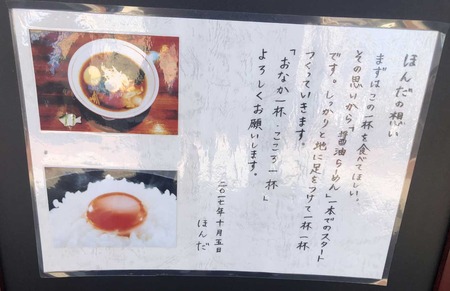 ほんだの想い
まずはこの一杯を食べてほしい。
その思いから「醤油らーめん」一本でのスタート
です。しっかりと地に足をつけて一杯一杯
つくっていきます。
「おなか一杯・こころ一杯」
よろしくお願いします。
二〇一七年十月五日
ほんだ